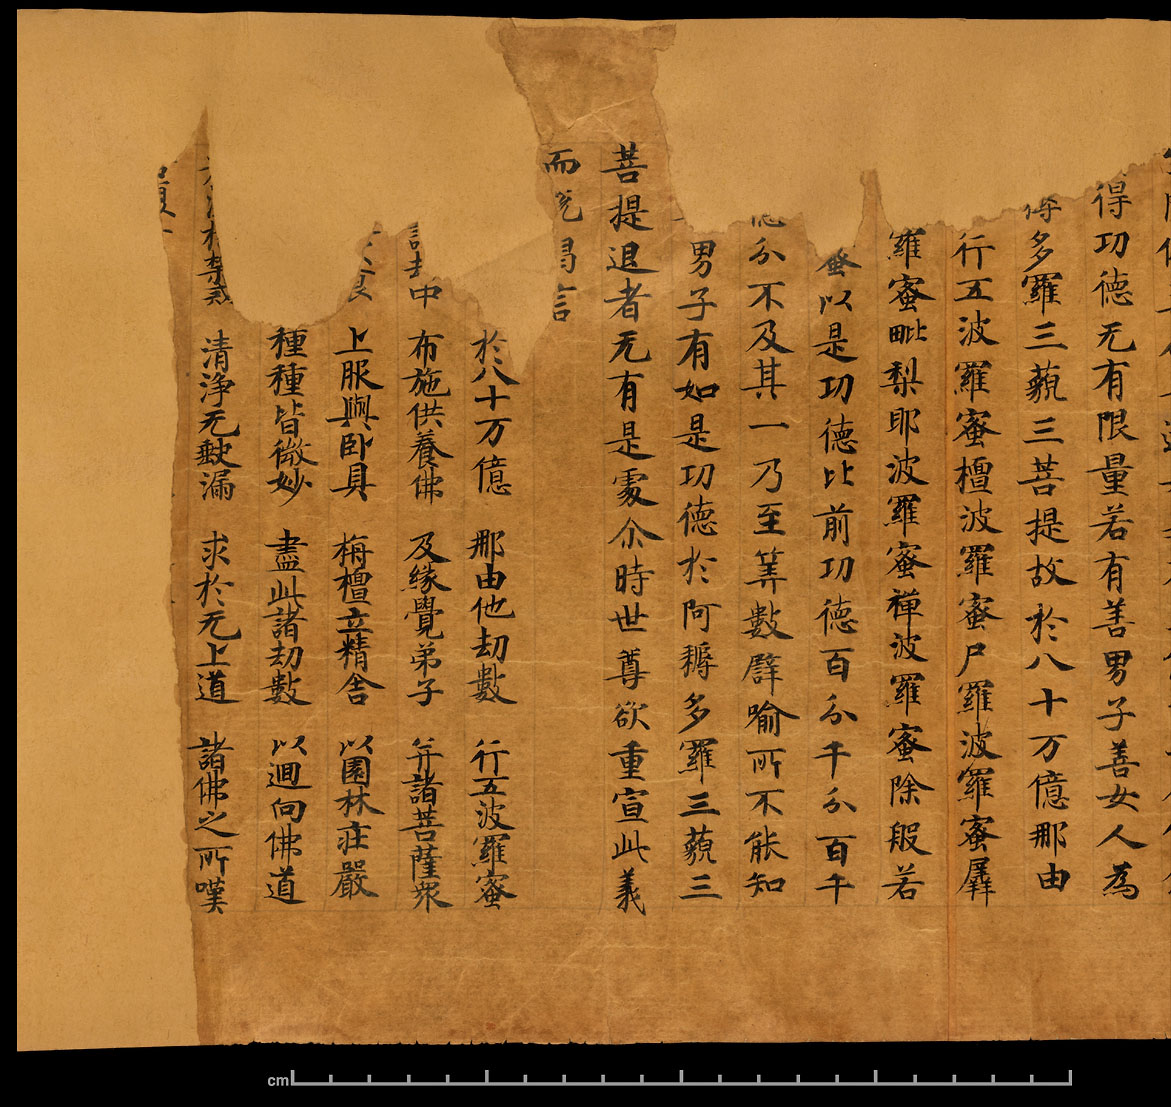 得功德无有限量若有善男子善女人為
耨多羅三藐三菩提故於八十万億那由
行五波羅蜜檀波羅蜜尸羅波羅蜜羼
羅蜜毗梨耶波羅蜜禪波羅蜜除般若
蜜以是功德比前功德百分千分百千
德分不及其一乃至筭數譬喻所不能知
男子有如是功德於阿耨多羅三藐三
菩提退者无有是處尒時世尊欲重宣此義
而說偈言
於八十万億 那由他劫數 行五波羅蜜
劫中 布施供養佛 及緣覺弟子 并諸菩薩衆
上服與卧具 栴檀立精舍 以園林莊嚴
種種皆微妙 盡此諸劫數 以迴向佛道
禁戒 清淨无缺漏 求於无上道 諸佛之所嘆
cm